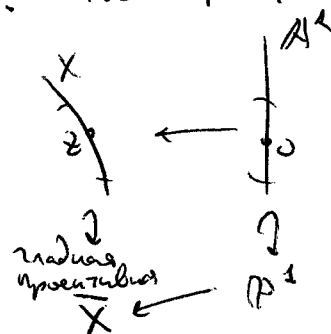 X
A¹
z
0
гладкая
проективная
X̄
P¹